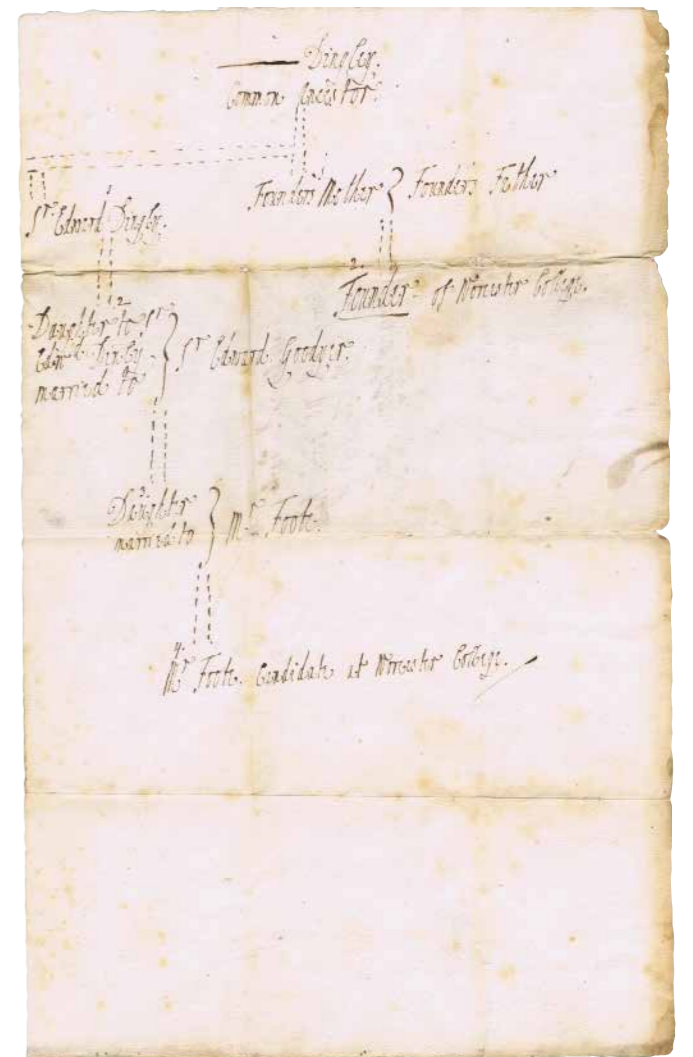 —— Dingley.
Common Ancestor.
1
Founders Mother } Founders Father
1
Sr. Edward Dingley.
2
Founder of Worcester College.
2
Daughter to Sr.
Edwd. Dingley
married to } Sr. Edward Goodyer.
3
Daughter
married to } Mr. Foote.
4.
Mr. Foote. Candidate at Worcester College.